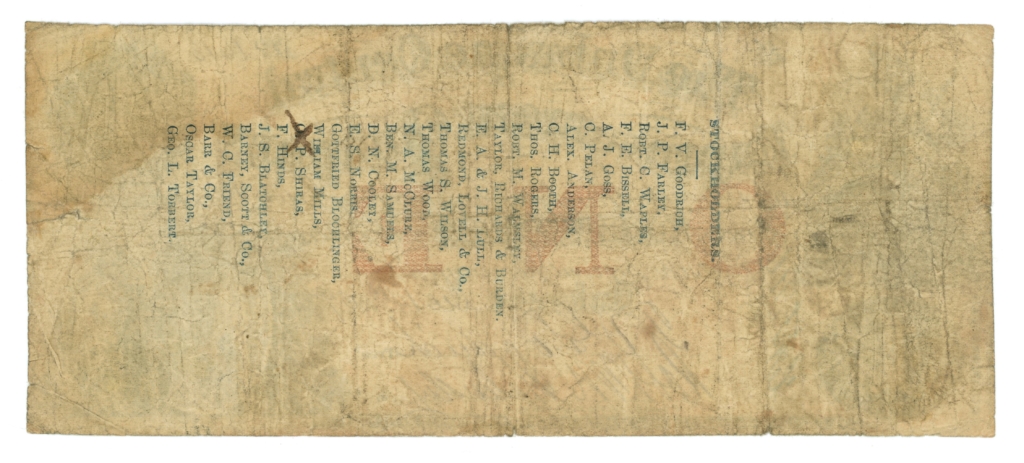 STOCKHOLDERS.
F. V. GOODRICH,
J. P. FARLEY,
ROBT. C. WAPLES,
F. E. BISSELL,
A. J. GOSS,
C. PELAN,
ALEX. ANDERSON,
C. H. BOOTH,
THOS. ROGERS,
ROBT. M. WALMSLEY,
TAYLOR, RICHARDS & BURDEN.
E. A. & J. H. LULL,
REDMOND, LOVELL & CO.,
THOMAS S. WILSON,
THOMAS WOOD,
N. A. MCCLURE,
BEN. M. SAMUELS,
D. N. COOLEY,
E. S. NORRIS,
GOTTFRIED BLOCHLINGER,
WILLIAM MILLS,
P. SHIRAS,
F. HINDS,
J. S. BLATCHLEY,
BARNEY, SCOTT & CO.,
W. C. FRIEND,
BARR & CO.,
OSCAR TAYLOR,
GEO. L. TORBERT.
ONE